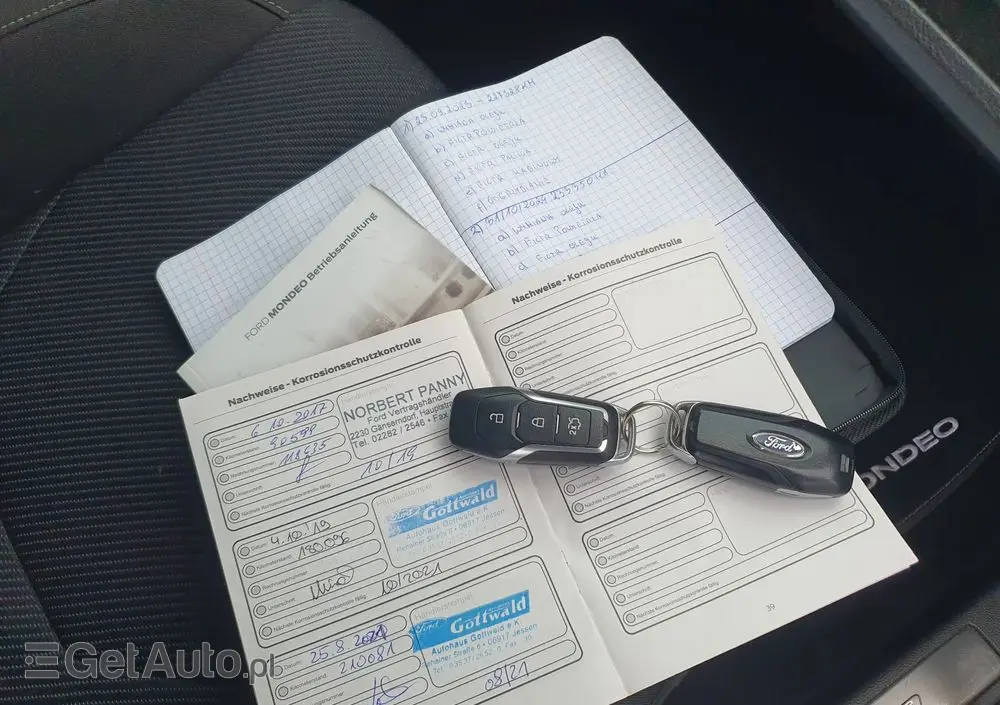 1) 25.02.2023 - 217328KM
a) WYMIANA OLEJU
b) FILTR POWIETRZA
c) FILTR OLEJU
d) FILTR PALIWA
e) FILTR KABINOWY
2) 31/10/2024 235550KM
a) WYMIANA OLEJU
b) FILTR POWIETRZA
c) FILTR OLEJU
FORD MONDEO Betriebsanleitung
Nachweise - Korrosionsschutzkontrolle
Datum 6.10.2017
Kilometerstand
Rechnungsnummer
Unterschrift
Nächste Korrosionsschutzkontrolle fällig 10/19
Händlerstempel
NORBERT PANNY
Ford Vertragshändler
2230 Gänserndorf, Hauptstr
Tel. 02282 / 2546 • Fax
Datum 4.10.'19
Kilometerstand 180096
Rechnungsnummer
Unterschrift
Nächste Korrosionsschutzkontrolle fällig 10/2021
Händlerstempel
Ford Gottwald
Autohaus Gottwald e.K.
Rehainer Straße 6 • 06917 Jessen
Datum 25.8.2021
Kilometerstand 210081
Rechnungsnummer
08/21
Händlerstempel
Ford Gottwald
Autohaus Gottwald e.K.
Rehainer Straße 6 • 06917 Jessen
Nachweise - Korrosionsschutzkontrolle
Datum
Kilometerstand
Rechnungsnummer
Unterschrift
Nächste Korrosionsschutzkontrolle fällig
Datum
Kilometerstand
Rechnungsnummer
Unterschrift
Nächste Korrosionsschutzkontrolle fällig
39
Ford
MONDEO
GetAuto.pl